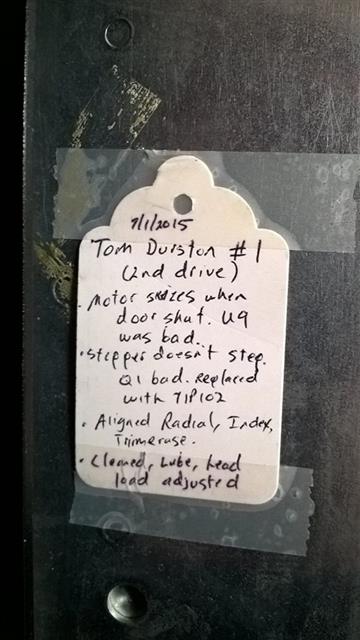 7/1/2015
Tom Durston #1
(2nd drive)
• Motor siezes when
door shut. U9
was bad.
• Stepper doesn't step.
Q1 bad. Replaced
with TIP102
• Aligned Radial, Index,
Trimerase.
• Cleaned, Lube, head
load adjusted